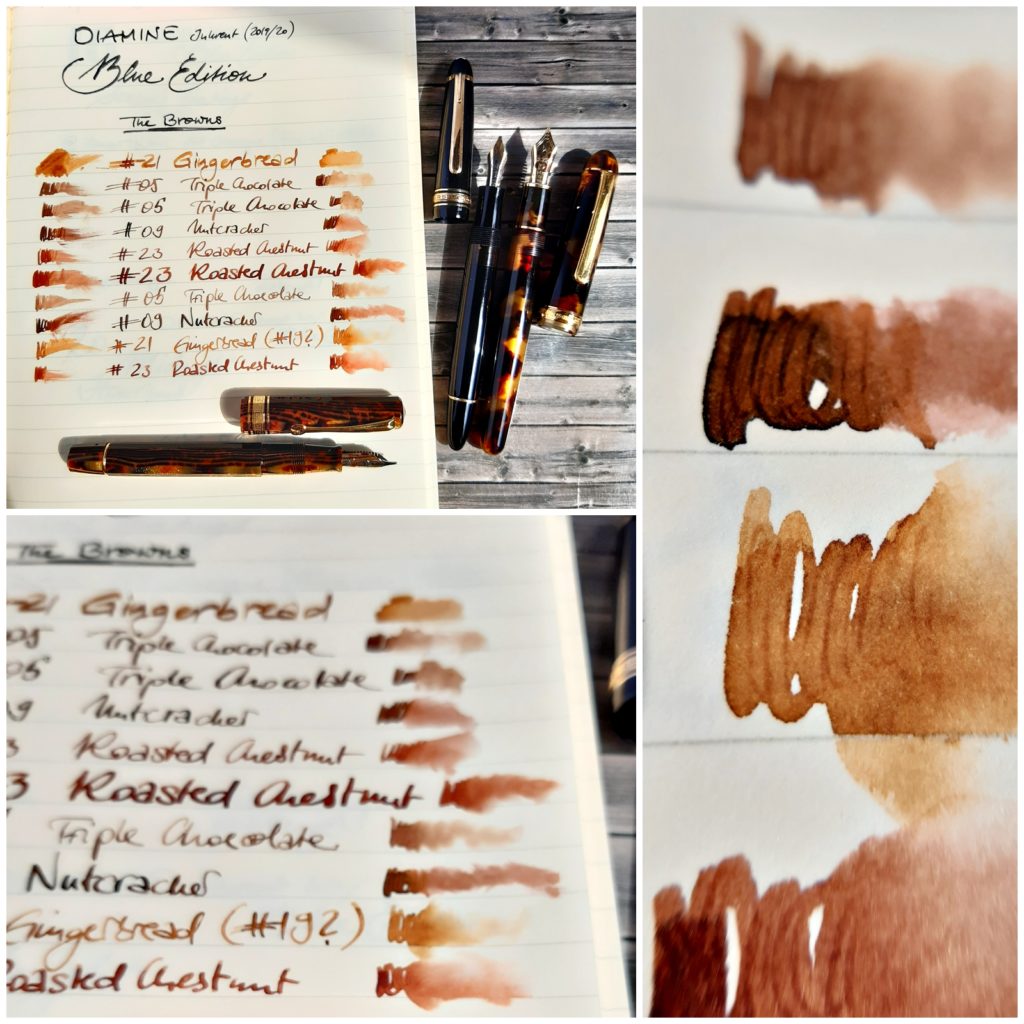 DIAMINE Inkvent (2019/20)
Blue Edition
The Browns
#21 Gingerbread
#05 Triple Chocolate
#05 Triple Chocolate
#09 Nutcracker
#23 Roasted Chestnut
#23 Roasted Chestnut
#05 Triple Chocolate
#09 Nutcracker
#21 Gingerbread (#19?)
#23 Roasted Chestnut
The Browns
21 Gingerbread
05 Triple Chocolate
05 Triple Chocolate
09 Nutcracker
3 Roasted Chestnut
3 Roasted Chestnut
Triple Chocolate
Nutcracker
Gingerbread (#19?)
Roasted Chestnut